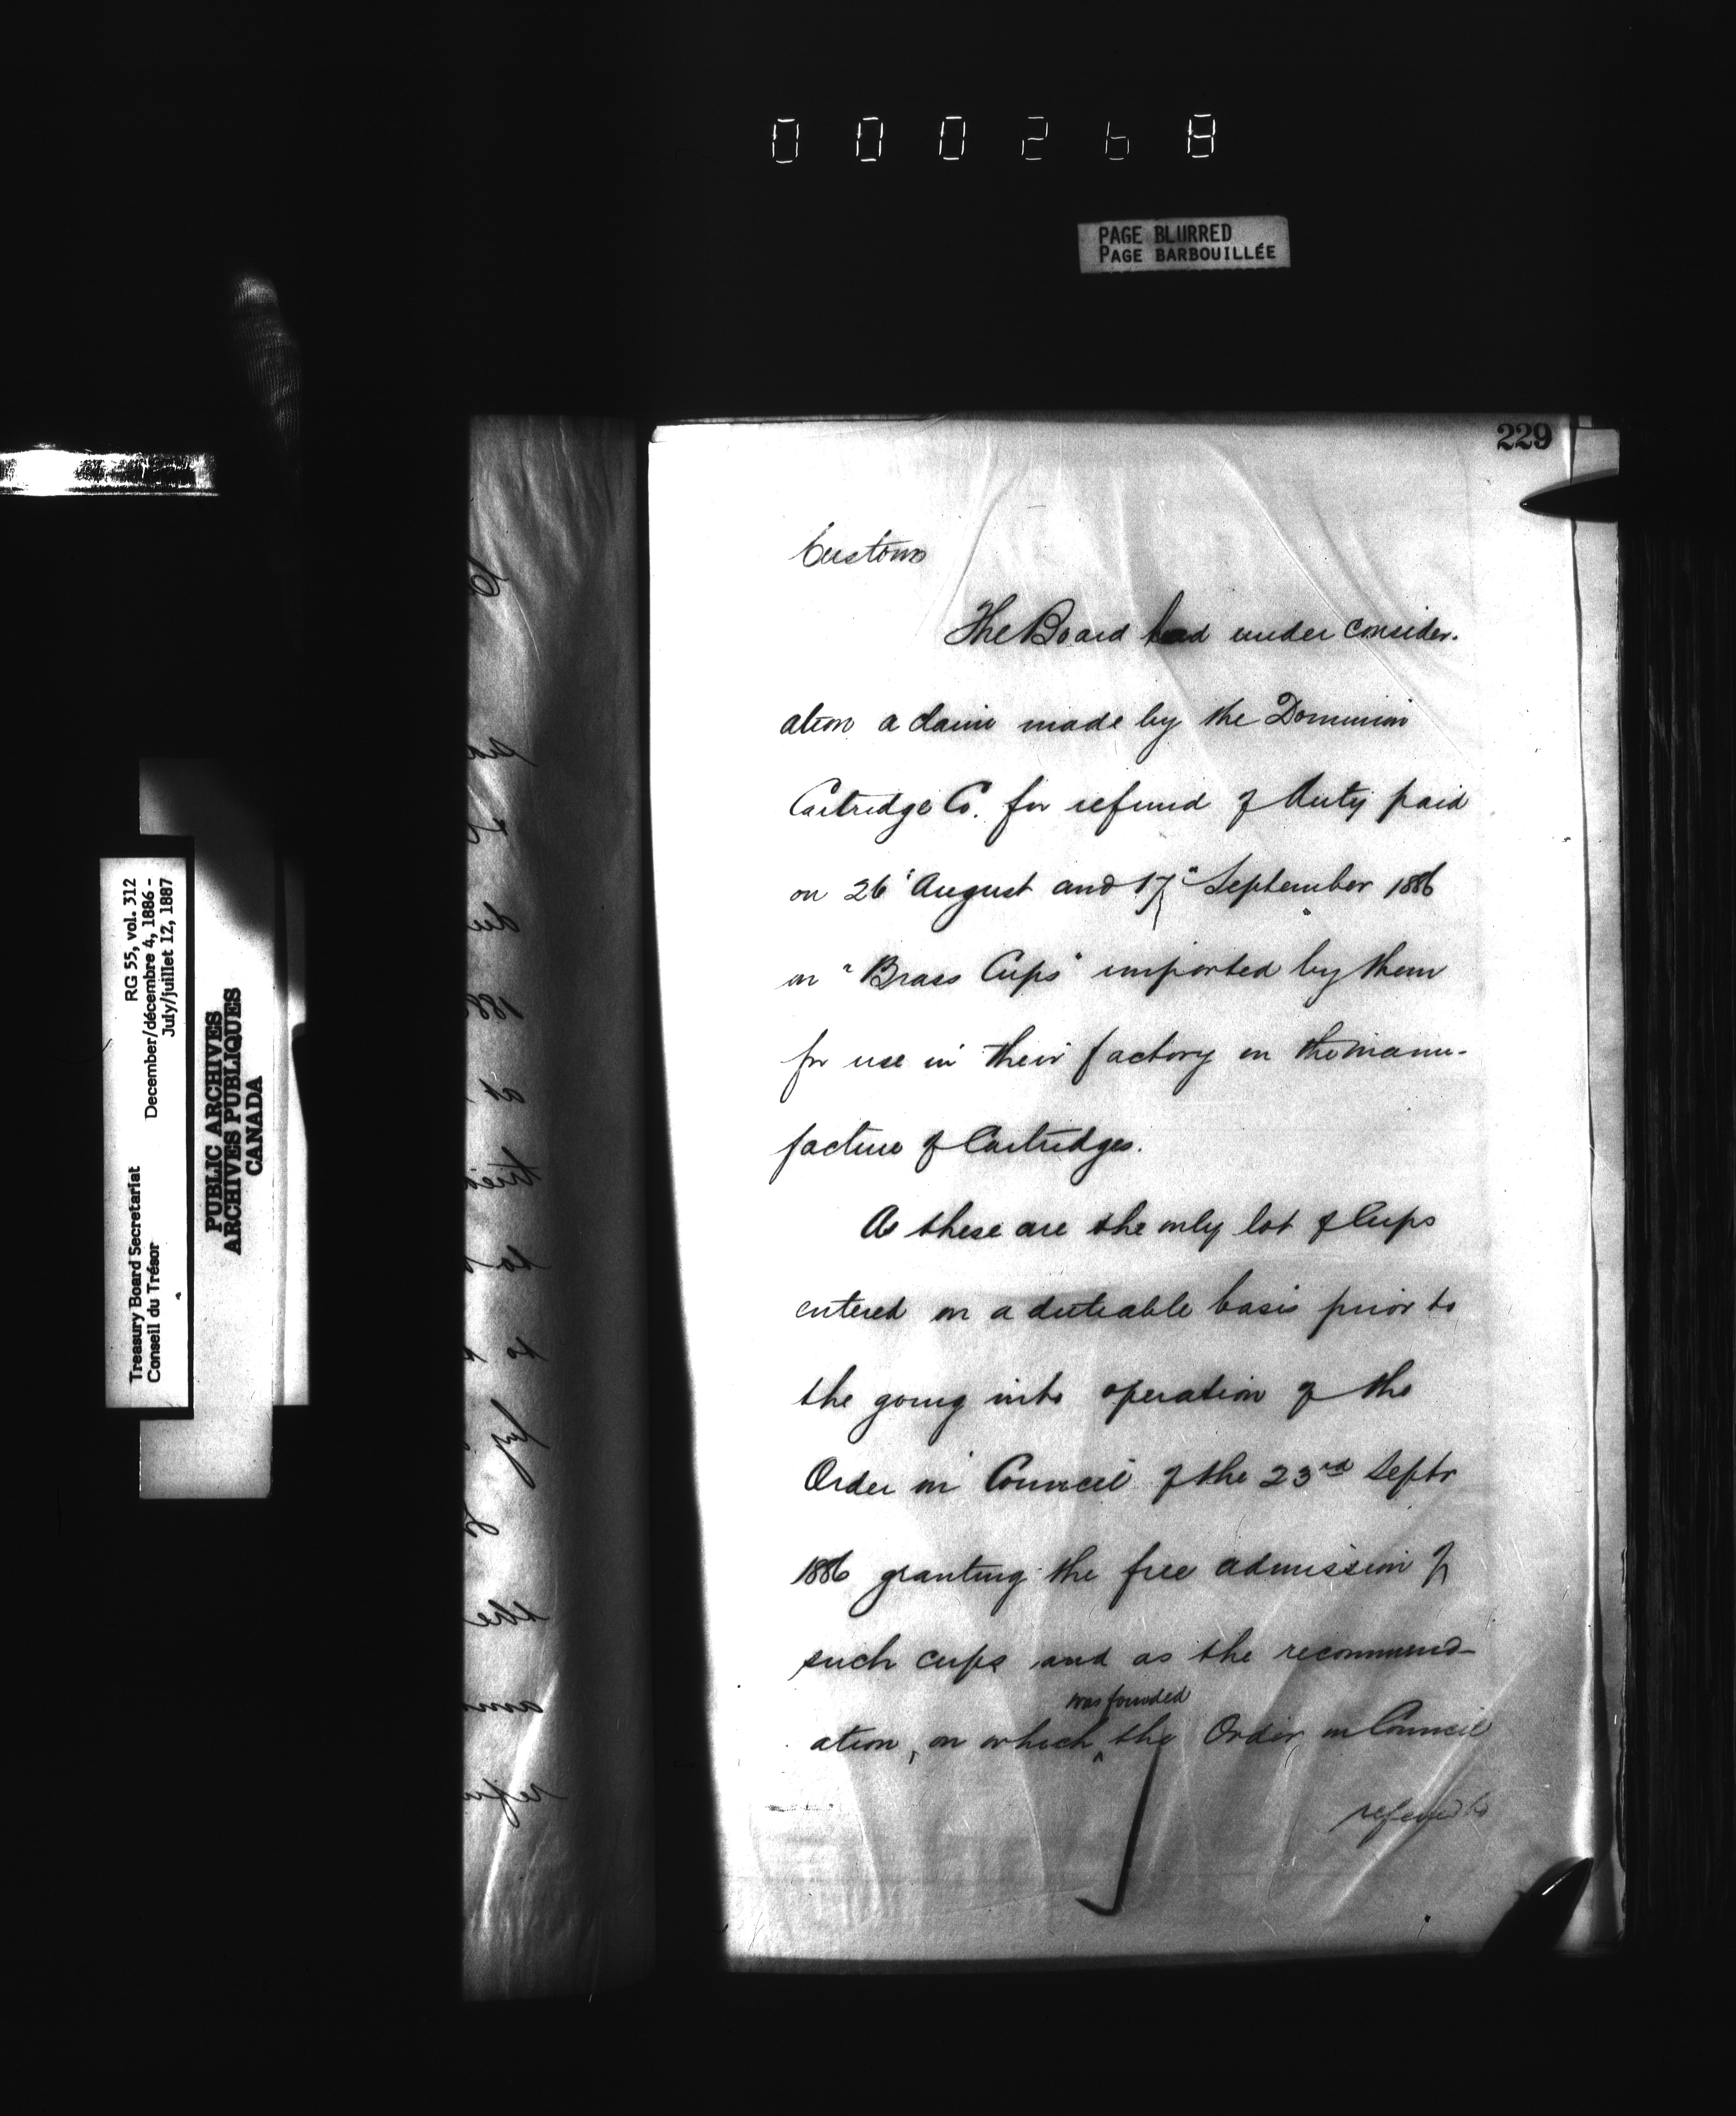 000268
PAGE BLURRED
PAGE BARBOUILLÉE
229
Customs
The Board had under consider-
ation a claim made by the Dominion
Cartridge Co. for refund of duty paid
on 26" August and 17" September 1886
on "Brass Cups" imported by them
for use in their factory in the manu-
facture of Cartridges.
As these are the only lot of Cups
entered on a dutiable basis prior to
the going into operation of the
Order in Council of the 23rd Septr
1886 granting the free admission of
such cups and as the recommend-
was founded
ation, on which ^ the Order in Council
referred to
Treasury Board Secretariat RG 55, vol. 312
Conseil du Trésor December/décembre 4, 1886 -
July/juillet 12, 1887
PUBLIC ARCHIVES
ARCHIVES PUBLIQUES
CANADA